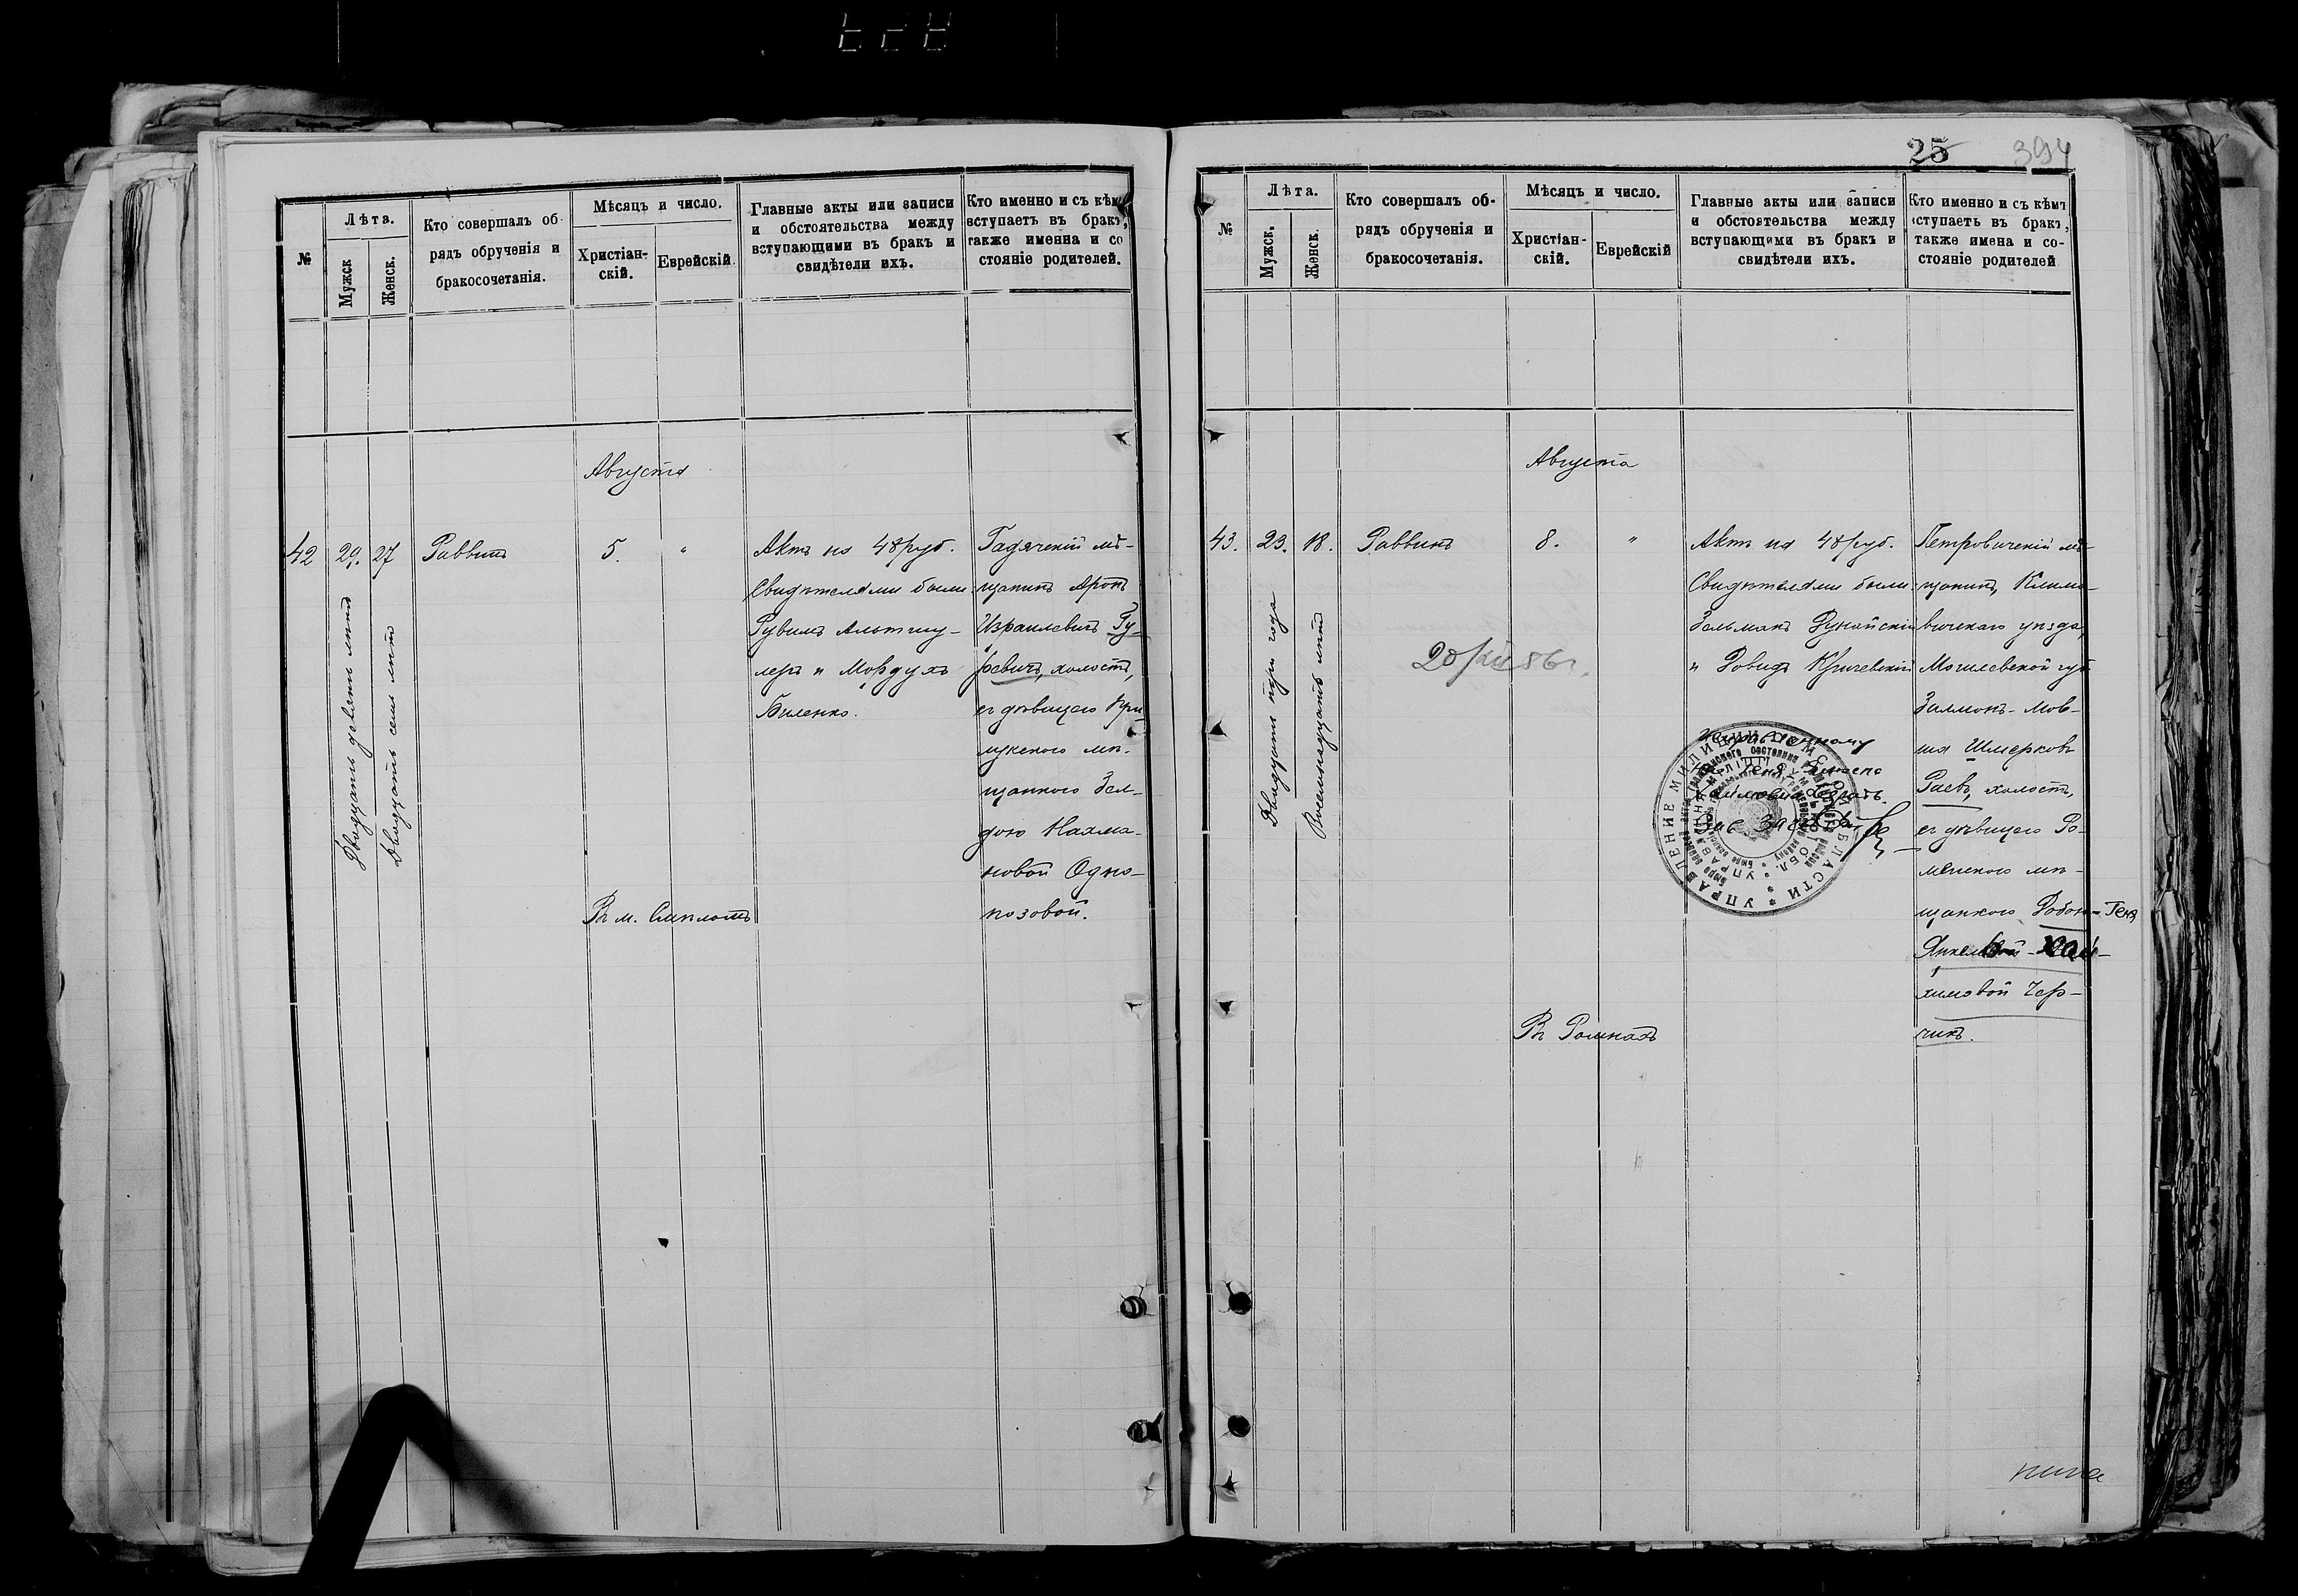 №
Лѣта.
Мужск
Женск.
Кто совершалъ об-
рядъ обрученія и
бракосочетанія.
Мѣсяцъ и число.
Христіан-
скій.
Еврейскій.
Главные акты или записи
и обстоятельства между
вступающими въ бракъ и
свидѣтели ихъ.
Кто именно и съ кѣмъ
вступаетъ въ бракъ,
также именна и со
стояніе родителей.
Августа
42
29.
27
Двадцать девять лѣтъ
Двадцать семь лѣтъ
Раввинъ
5.
"
Актъ на 48 руб.
Свидѣтелями были:
Рувимъ Альтшу-
леръ и Мордухъ
Биленко.
Гадячскій мѣ-
щанинъ Аронъ
Израилевичъ Гу-
ревичъ, холостъ,
съ дѣвицею При-
лукскою мѣ-
щанкою Зел-
дою Нахма-
новой Одно-
позовой.
Въ м. Смѣломъ
25
394
№
Лѣта.
Мужск.
Женск.
Кто совершалъ об-
рядъ обрученія и
бракосочетанія.
Мѣсяцъ и число.
Христіан-
скій.
Еврейскій
Главные акты или записи
и обстоятельства между
вступающими въ бракъ и
свидѣтели ихъ.
Кто именно и съ кѣмъ
вступаетъ въ бракъ,
также имена и со-
стояніе родителей
Августа
43.
23.
18.
Двадцать три года
Восемнадцать лѣтъ
Раввинъ
8.
"
Актъ на 48 руб.
Свидѣтелями были:
Зельманъ Дунайскій
и Довидъ Кричевскій
Петровичскій мѣ-
щанинъ, Климо-
вичскаго уѣзда,
Могилевской губ
Залманъ-Мов-
ша Шмерковъ
Раевъ, холостъ,
съ дѣвицею Ро-
менскою мѣ-
щанкою Добою-Геня
Янкелевой-Хай-
химовой Чер-
чикъ.
Въ Ромнахъ
УПРАВЛЕНИЕ МИЛИЦИИ СУМСКОЙ ОБЛАСТИ